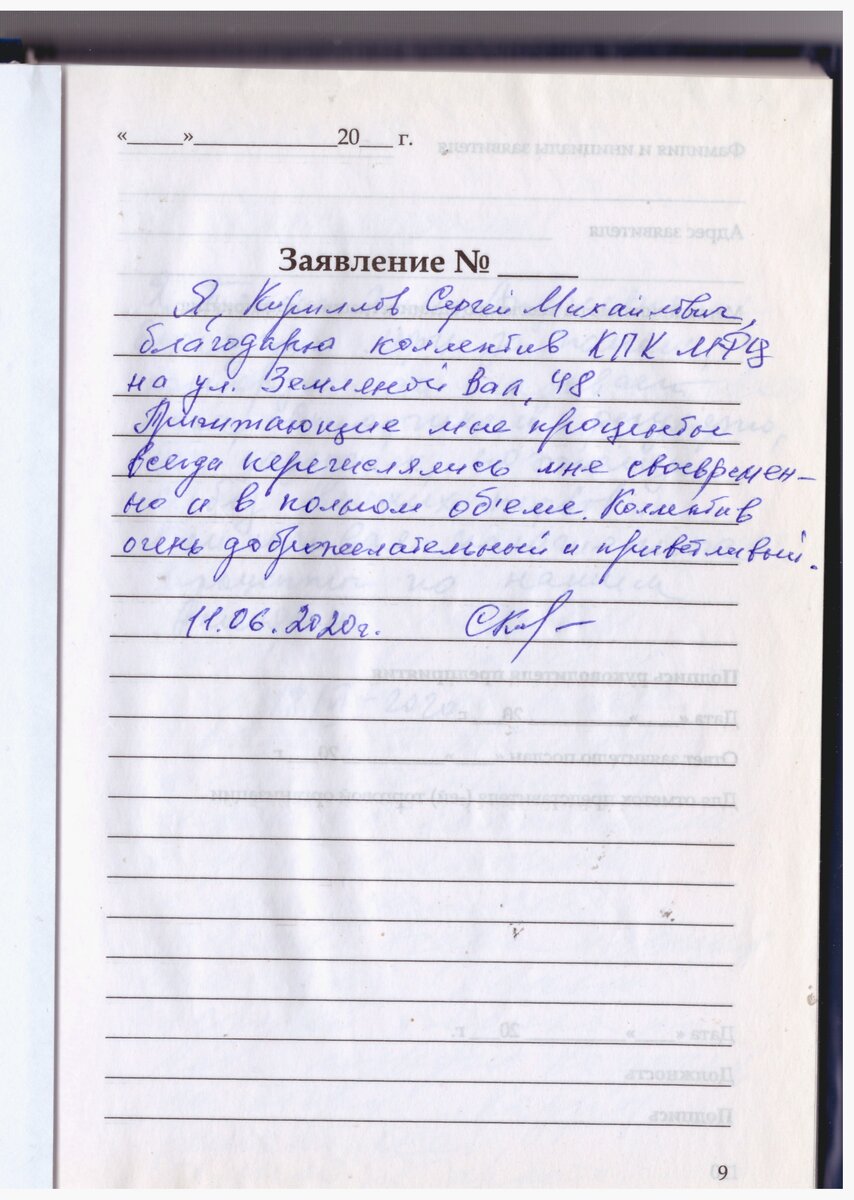 «_____»_____________20___ г.
Заявление № _____
Я, Кириллов Сергей Михайлович,
благодарю коллектив КПК МФЦ
на ул. Земляной Вал, 48.
Причитающие мне проценты
всегда перечислялись мне своевремен-
но и в полном объеме. Коллектив
очень доброжелательный и приветливый.
11.06.2020г.
9